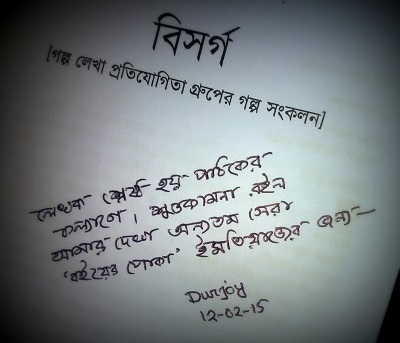 বিসর্গ
[গল্প লেখা প্রতিযোগিতা গ্রুপের গল্প সংকলন]
লেখনী স্পর্শ হয় পাঠকের
কল্যাণে। শুভকামনা রইল
আমার দেখা অন্যতম সেরা
'বইয়ের পোকা' ইমতিয়াজের জন্য—
Durjoy
12-02-15